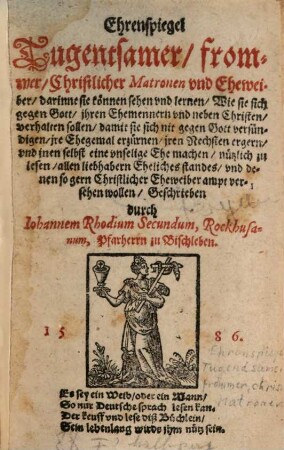 Ehrenspiegel
Tugentsamer/ from-
mer/ Christlicher Matronen vnd Ehewei-
ber/ darinne sie können sehen vnd lernen/ Wie sie sich
gegen Gott/ jhren Ehemennern vnd neben Christen/
verhalten sollen/ damit sie sich nit gegen Gott versün-
digen/ jre Ehegemal erzürnen/ jren Nechsten ergern/
vnd jnen selbst eine vnselige Ehe machen/ nützlich zu
lesen/ allen liebhabern Ehelichs standes/ vnd de-
nen so gern Christlicher Eheweiber ampt ver-
sehen wollen/ Geschrieben
durch
Iohannem Rhodium Secundum, Rockhusa-
num, Pfarherrn zu Bischleben.
1586.
Ehrenspiegel
Tugendsame
frommer, chris
Matronen
Es sey ein Weib/ oder ein Mann/
So nur Deutsche sprach lesen kan.
Der keuff vnd lese diß Büchlein/
Sein lebenlang wirds jhm nütz sein.